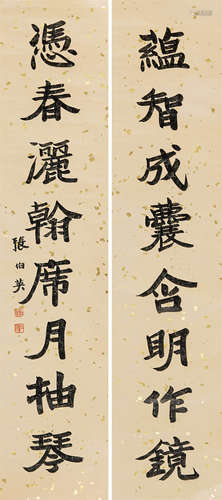 蘊智成囊含明作鏡
憑春灑翰席月抽琴
張伯英